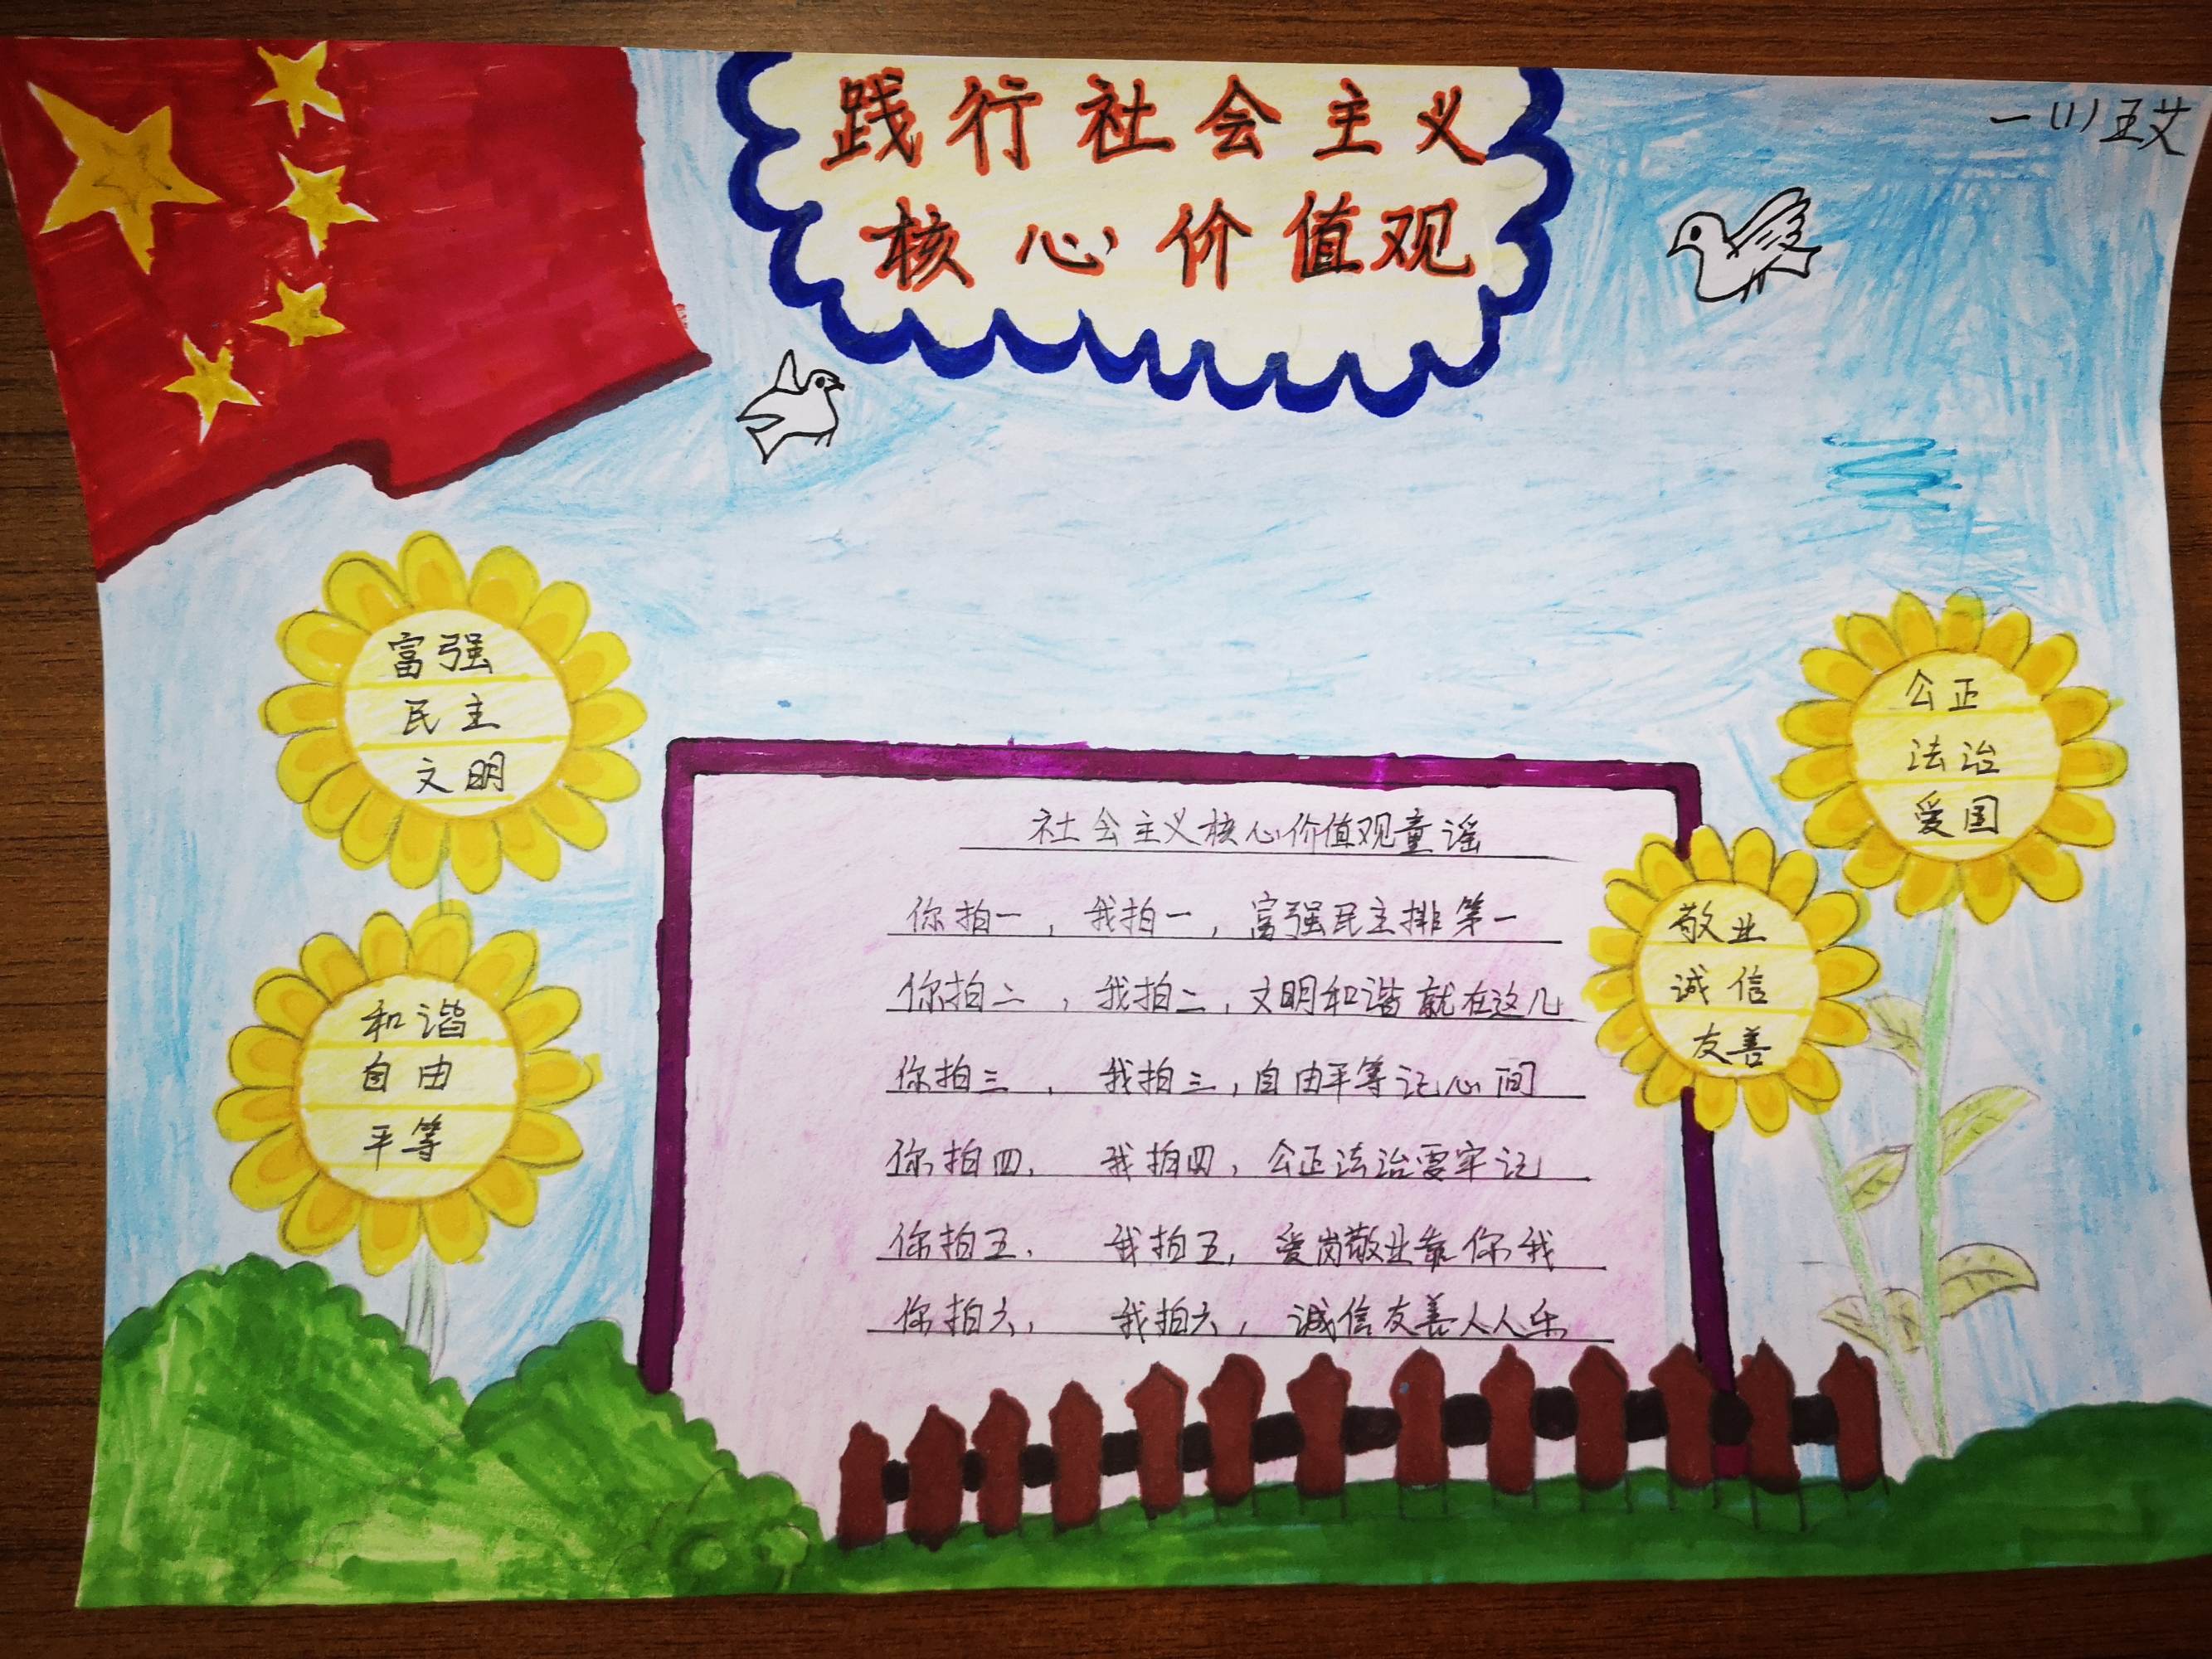 践行社会主义
核心价值观
一(1)王艾
富强
民主
文明
和谐
自由
平等
公正
法治
爱国
敬业
诚信
友善
社会主义核心价值观童谣
你拍一，我拍一，富强民主排第一
你拍二，我拍二，文明和谐就在这儿
你拍三，我拍三，自由平等记心间
你拍四，我拍四，公正法治要牢记
你拍五，我拍五，爱岗敬业靠你我
你拍六，我拍六，诚信友善人人乐